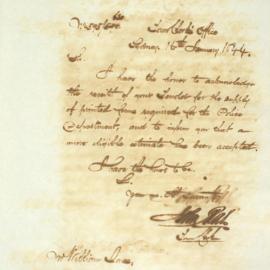 Town Clerk's Office
Sydney 16th January 1844
Sir,
I have the honor to acknowledge
the receipt of your Tender for the supply
of printed forms required for the Police
Department, and to inform you that a
more eligible estimate has been accepted.
I have the honor to be
Sir,
Your
Town Clerk
Mr William